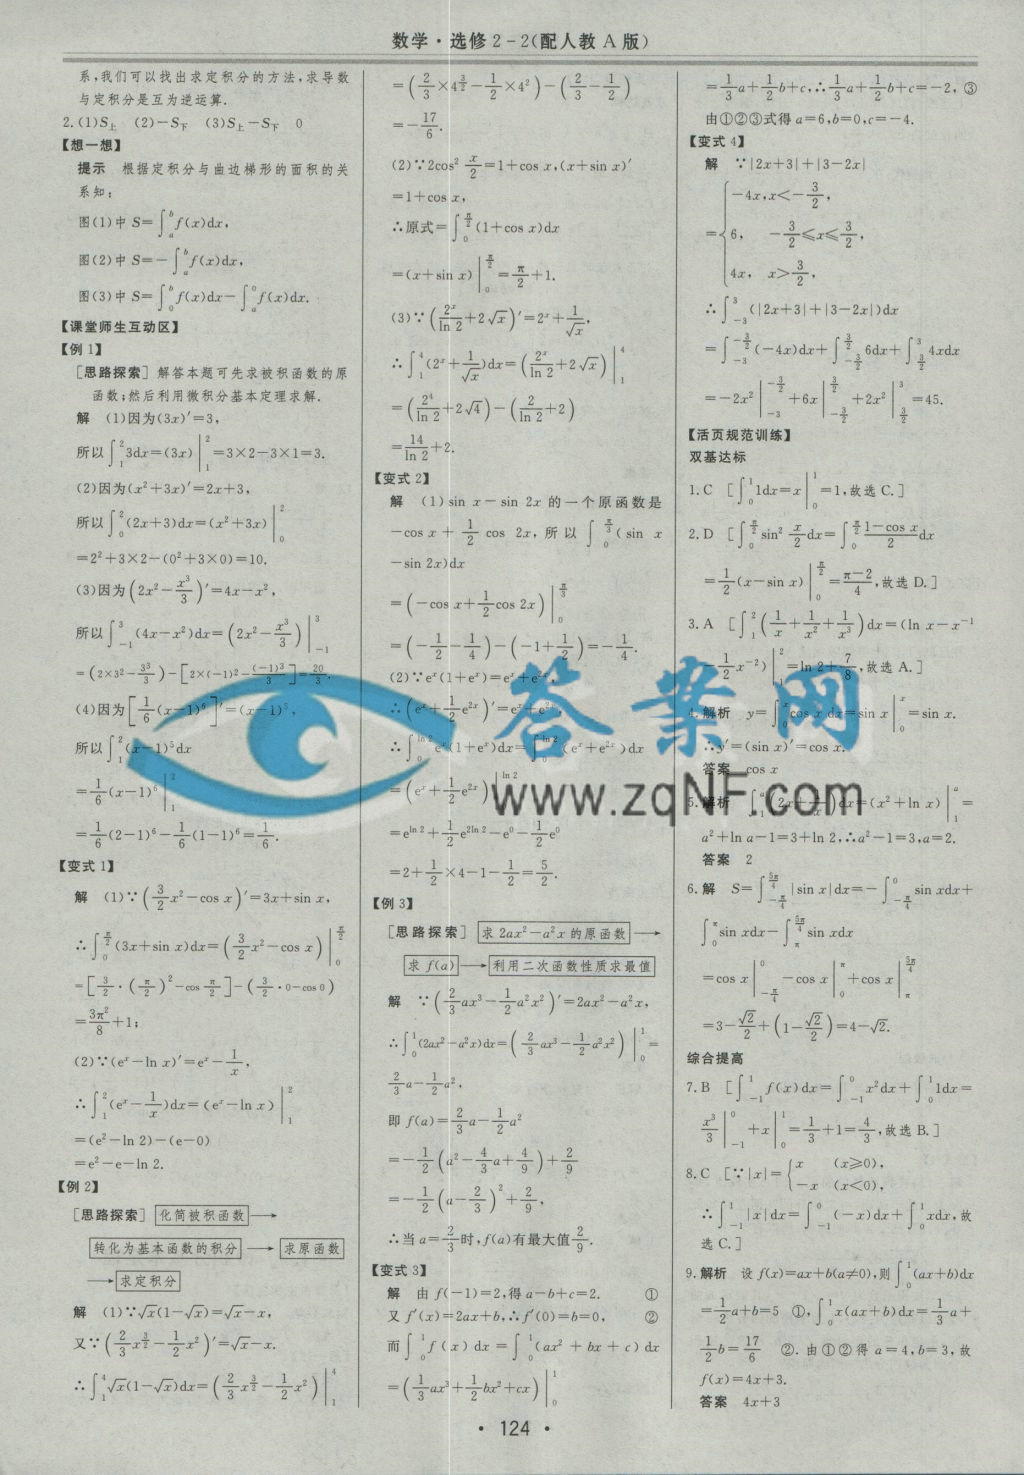 数学·选修2-2(配人教A版)
系,我们可以找出求定积分的方法,求导数
与定积分是互为逆运算.
2.(1)S上 (2)-S下 (3)S上-S下 0
【想一想】
提示 根据定积分与曲边梯形的面积的关
系知:
图(1)中 S=∫_a^b f(x)dx,
图(2)中 S=-∫_a^b f(x)dx,
图(3)中 S=∫_0^b f(x)dx-∫_a^0 f(x)dx.
【课堂师生互动区】
【例1】
[思路探索] 解答本题可先求被积函数的原
函数;然后利用微积分基本定理求解.
解 (1)因为(3x)′=3,
所以∫_1^2 3dx=(3x)|_1^2=3×2-3×1=3.
(2)因为(x²+3x)′=2x+3,
所以∫_0^2 (2x+3)dx=(x²+3x)|_0^2
=2²+3×2-(0²+3×0)=10.
(3)因为(2x²-x³/3)′=4x-x²,
所以∫_{-1}^3 (4x-x²)dx=(2x²-x³/3)|_{-1}^3
=(2×3²-3³/3)-[2×(-1)²-(-1)³/3]=20/3.
(4)因为[1/6(x-1)⁶]′=(x-1)⁵,
所以∫_1^2 (x-1)⁵dx
=1/6(x-1)⁶|_1^2
=1/6(2-1)⁶-1/6(1-1)⁶=1/6.
【变式1】
解 (1)∵(3/2x²-cos x)′=3x+sin x,
∴∫_0^{π/2} (3x+sin x)dx=(3/2x²-cos x)|_0^{π/2}
=[3/2·(π/2)²-cos π/2]-(3/2·0-cos0)
=3π²/8+1;
(2)∵(eˣ-ln x)′=eˣ-1/x,
∴∫_1^2 (eˣ-1/x)dx=(eˣ-ln x)|_1^2
=(e²-ln 2)-(e-0)
=e²-e-ln 2.
【例2】
[思路探索] 化简被积函数→
转化为基本函数的积分→求原函数
→求定积分
解 (1)∵√x(1-√x)=√x-x,
又∵(2/3x^{3/2}-1/2x²)′=√x-x.
∴∫_1^4 √x(1-√x)dx=(2/3x^{3/2}-1/2x²)|_1^4
=(2/3×4^{3/2}-1/2×4²)-(2/3-1/2)
=-17/6.
(2)∵2cos² x/2=1+cos x,(x+sin x)′
=1+cos x,
∴原式=∫_0^{π/2} (1+cos x)dx
=(x+sin x)|_0^{π/2}=π/2+1.
(3)∵(2ˣ/ln 2+2√x)′=2ˣ+1/√x,
∴∫_1^4 (2ˣ+1/√x)dx=(2ˣ/ln 2+2√x)|_1^4
=(2⁴/ln 2+2√4)-(2/ln 2+2)
=14/ln 2+2.
【变式2】
解 (1)sin x-sin 2x 的一个原函数是
-cos x+1/2 cos 2x,所以∫_0^{π/3} (sin x
-sin 2x)dx
=(-cos x+1/2cos 2x)|_0^{π/3}
=(-1/2-1/4)-(-1+1/2)=-1/4.
(2)∵eˣ(1+eˣ)=eˣ+e²ˣ,
∴(eˣ+1/2e²ˣ)′=eˣ+e²ˣ,
∴∫_0^{ln 2} eˣ(1+eˣ)dx=∫_0^{ln 2} (eˣ+e²ˣ)dx
=(eˣ+1/2e²ˣ)|_0^{ln 2}
=e^{ln 2}+1/2e^{2ln 2}-e⁰-1/2e⁰
=2+1/2×4-1-1/2=5/2.
【例3】
[思路探索] 求2ax²-a²x的原函数→
求f(a)→利用二次函数性质求最值
解 ∵(2/3ax³-1/2a²x²)′=2ax²-a²x,
∴∫_0^1 (2ax²-a²x)dx=(2/3ax³-1/2a²x²)|_0^1=
2/3a-1/2a²,
即 f(a)=2/3a-1/2a²
=-1/2(a²-4/3a+4/9)+2/9
=-1/2(a-2/3)²+2/9,
∴当a=2/3时,f(a)有最大值2/9.
【变式3】
解 由f(-1)=2,得a-b+c=2. ①
又f′(x)=2ax+b,∴f′(0)=b=0, ②
而∫_0^1 f(x)dx=∫_0^1 (ax²+bx+c)dx
=(1/3ax³+1/2bx²+cx)|_0^1
=1/3a+1/2b+c,∴1/3a+1/2b+c=-2, ③
由①②③式得a=6,b=0,c=-4.
【变式4】
解 ∵|2x+3|+|3-2x|
={-4x,x<-3/2,
6, -3/2≤x≤3/2,
4x, x>3/2,
∴∫_{-3}^3 (|2x+3|+|3-2x|)dx
=∫_{-3}^{-3/2} (-4x)dx+∫_{-3/2}^{3/2} 6dx+∫_{3/2}^3 4xdx
=-2x²|_{-3}^{-3/2}+6x|_{-3/2}^{3/2}+2x²|_{3/2}^3=45.
【活页规范训练】
双基达标
1.C [∫_0^1 1dx=x|_0^1=1,故选C.]
2.D [∫_0^{π/2} sin² x/2 dx=∫_0^{π/2} (1-cos x)/2 dx
=1/2(x-sin x)|_0^{π/2}=(π-2)/4,故选D.]
3.A [∫_1^2 (1/x+1/x²+1/x³)dx=(ln x-x⁻¹
-1/2x⁻²)|_1^2=ln 2+7/8,故选A.]
4.解析 y=∫_0^x cos x dx=sin x|_0^x=sin x.
∴y′=(sin x)′=cos x.
答案 cos x
5.解析 ∫_1^a (2x+1/x)dx=(x²+ln x)|_1^a=
a²+ln a-1=3+ln 2,∴a²-1=3,a=2.
答案 2
6.解 S=∫_{-π/4}^{5π/4} |sin x|dx=-∫_{-π/4}^0 sin xdx+
∫_0^π sin xdx-∫_π^{5π/4} sin xdx
=cos x|_{-π/4}^0-cos x|_0^π+cos x|_π^{5π/4}
=3-√2/2+(1-√2/2)=4-√2.
综合提高
7.B [∫_{-1}^1 f(x)dx=∫_{-1}^0 x²dx+∫_0^1 1dx=
x³/3|_{-1}^0+x|_0^1=1/3+1=4/3,故选B.]
8.C [∵|x|={x (x≥0),
-x (x<0),
∴∫_{-1}^1 |x|dx=∫_{-1}^0 (-x)dx+∫_0^1 xdx,故
选C.]
9.解析 设f(x)=ax+b(a≠0),则∫_0^1 (ax+b)dx
=1/2a+b=5 ①,∫_0^1 x(ax+b)dx=1/3a+
1/2b=17/6 ②.由①②得a=4,b=3,故
f(x)=4x+3.
答案 4x+3
答案网
www.zqNF.com
·124·